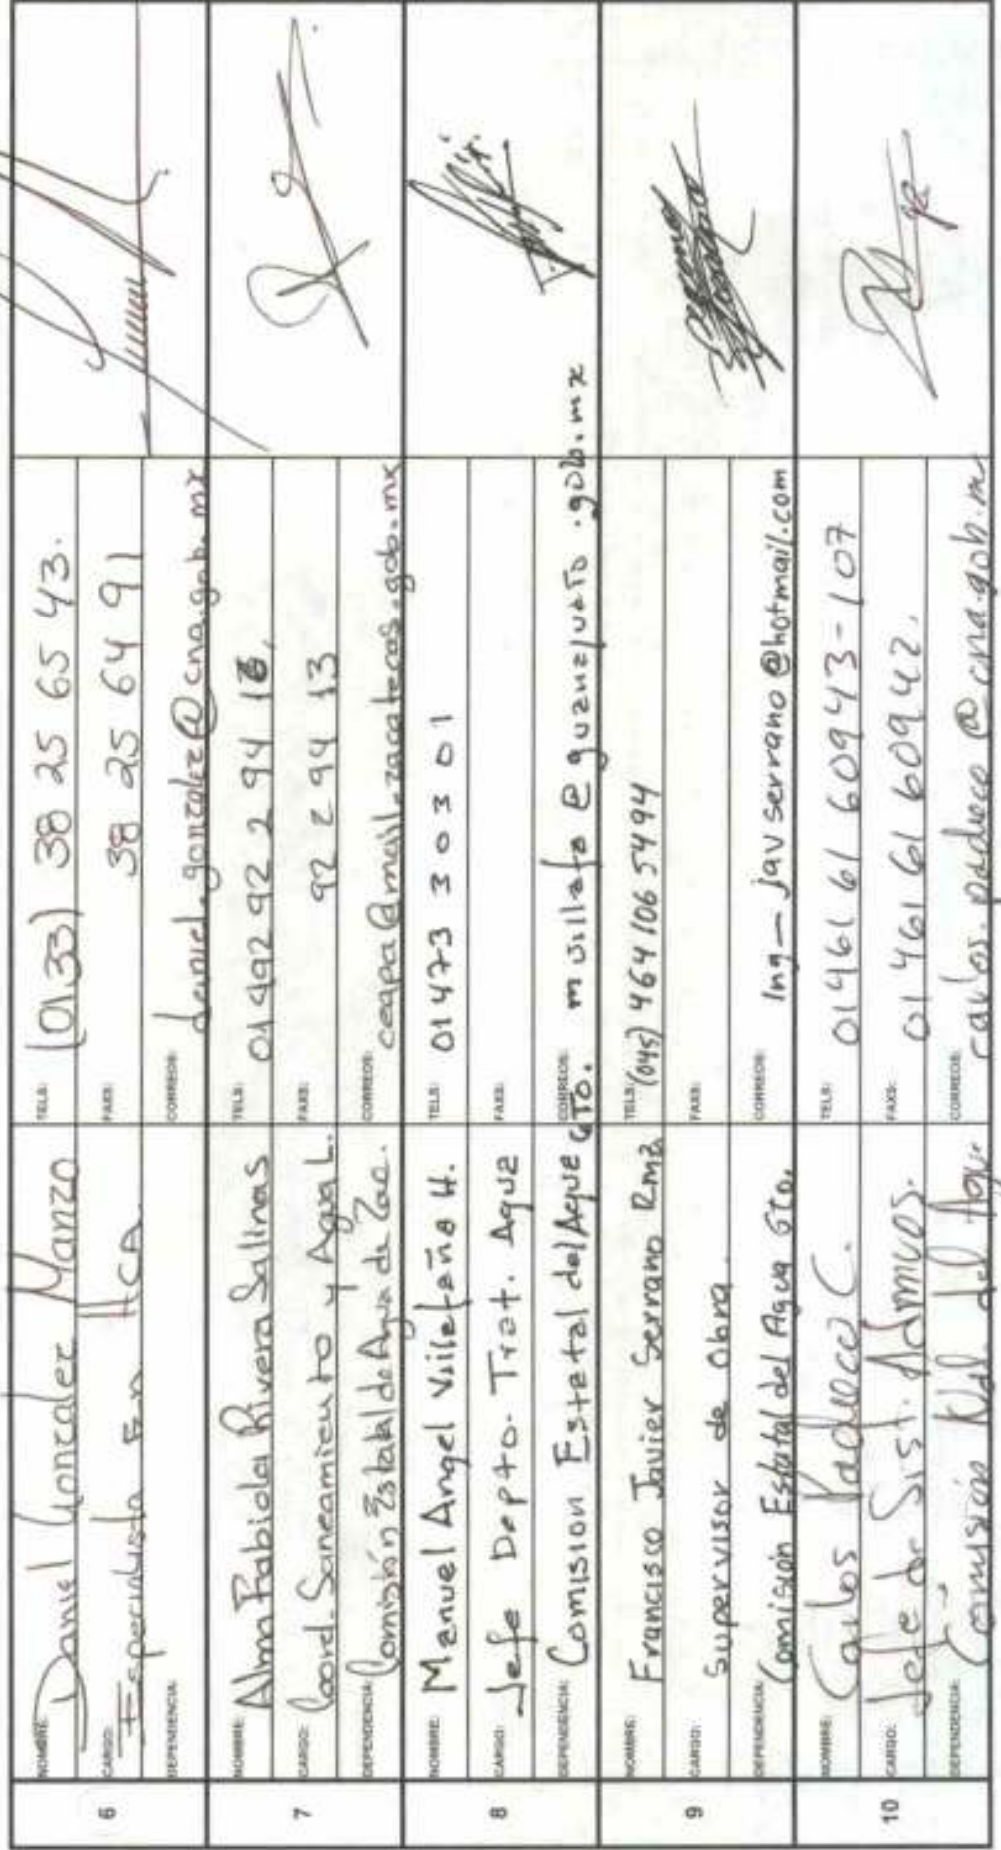 6
NOMBRE: Daniel Gonzalez Manzo
TELS: (0133) 38 25 65 43.
CARGO: Especialista En HCA
FAXS: 38 25 64 91
DEPENDENCIA:
CORREOS: daniel.gonzalez@cna.gob.mx
7
NOMBRE: Alma Fabiola Rivera Salinas
TELS: 01 492 92 2 94 13,
CARGO: Coord. Saneamiento y Agua L.
FAXS: 92 2 94 13
DEPENDENCIA: Comisión Estatal de Agua de Zac.
CORREOS: ceapa@mail.zacatecas.gob.mx
8
NOMBRE: Manuel Angel Villafaña H.
TELS: 01 473 3 0 3 0 1
CARGO: Jefe Depto. Trat. Agua
FAXS:
DEPENDENCIA: Comision Estatal del Agua GTo.
CORREOS: mvillafa@guanajuato.gob.mx
9
NOMBRE: Francisco Javier Serrano Rmz
TELS: (045) 464 106 5494
CARGO: Supervisor de Obra.
FAXS:
DEPENDENCIA: Comisión Estatal del Agua Gto.
CORREOS: Ing_javserrano@hotmail.com
10
NOMBRE: Carlos Pacheco C.
TELS: 01461 61 60943-107
CARGO: Jefe de Sist. Admvos.
FAXS: 01 461 61 60942.
DEPENDENCIA: Comisión Nal. del Agua
CORREOS: carlos.pacheco@cna.gob.m